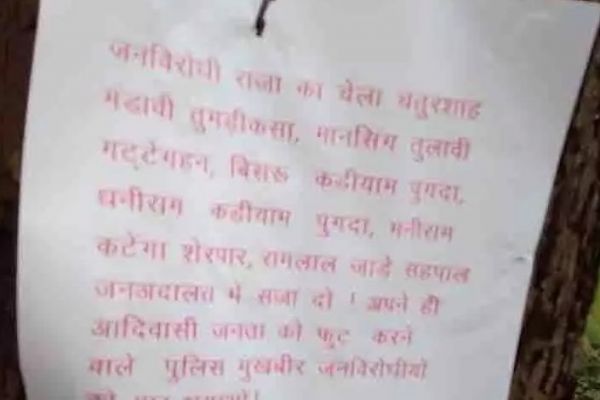 जनविरोधी राजा का चेला चतुरशाह
मंडावी तुमडीकसा, मानसिंग तुलावी
गट्टेगहन, बिसरू कडीयाम पुगदा,
धनीराम कडीयाम पुगदा, मनीराम
कटेंगा शेरपार, रामलाल जाडे सहपाल
जनअदालत में सजा दो ! अपने ही
आदिवासी जनता को फुट करने
वाले पुलिस मुखबीर जनविरोधीयों
को मार भगाओ!